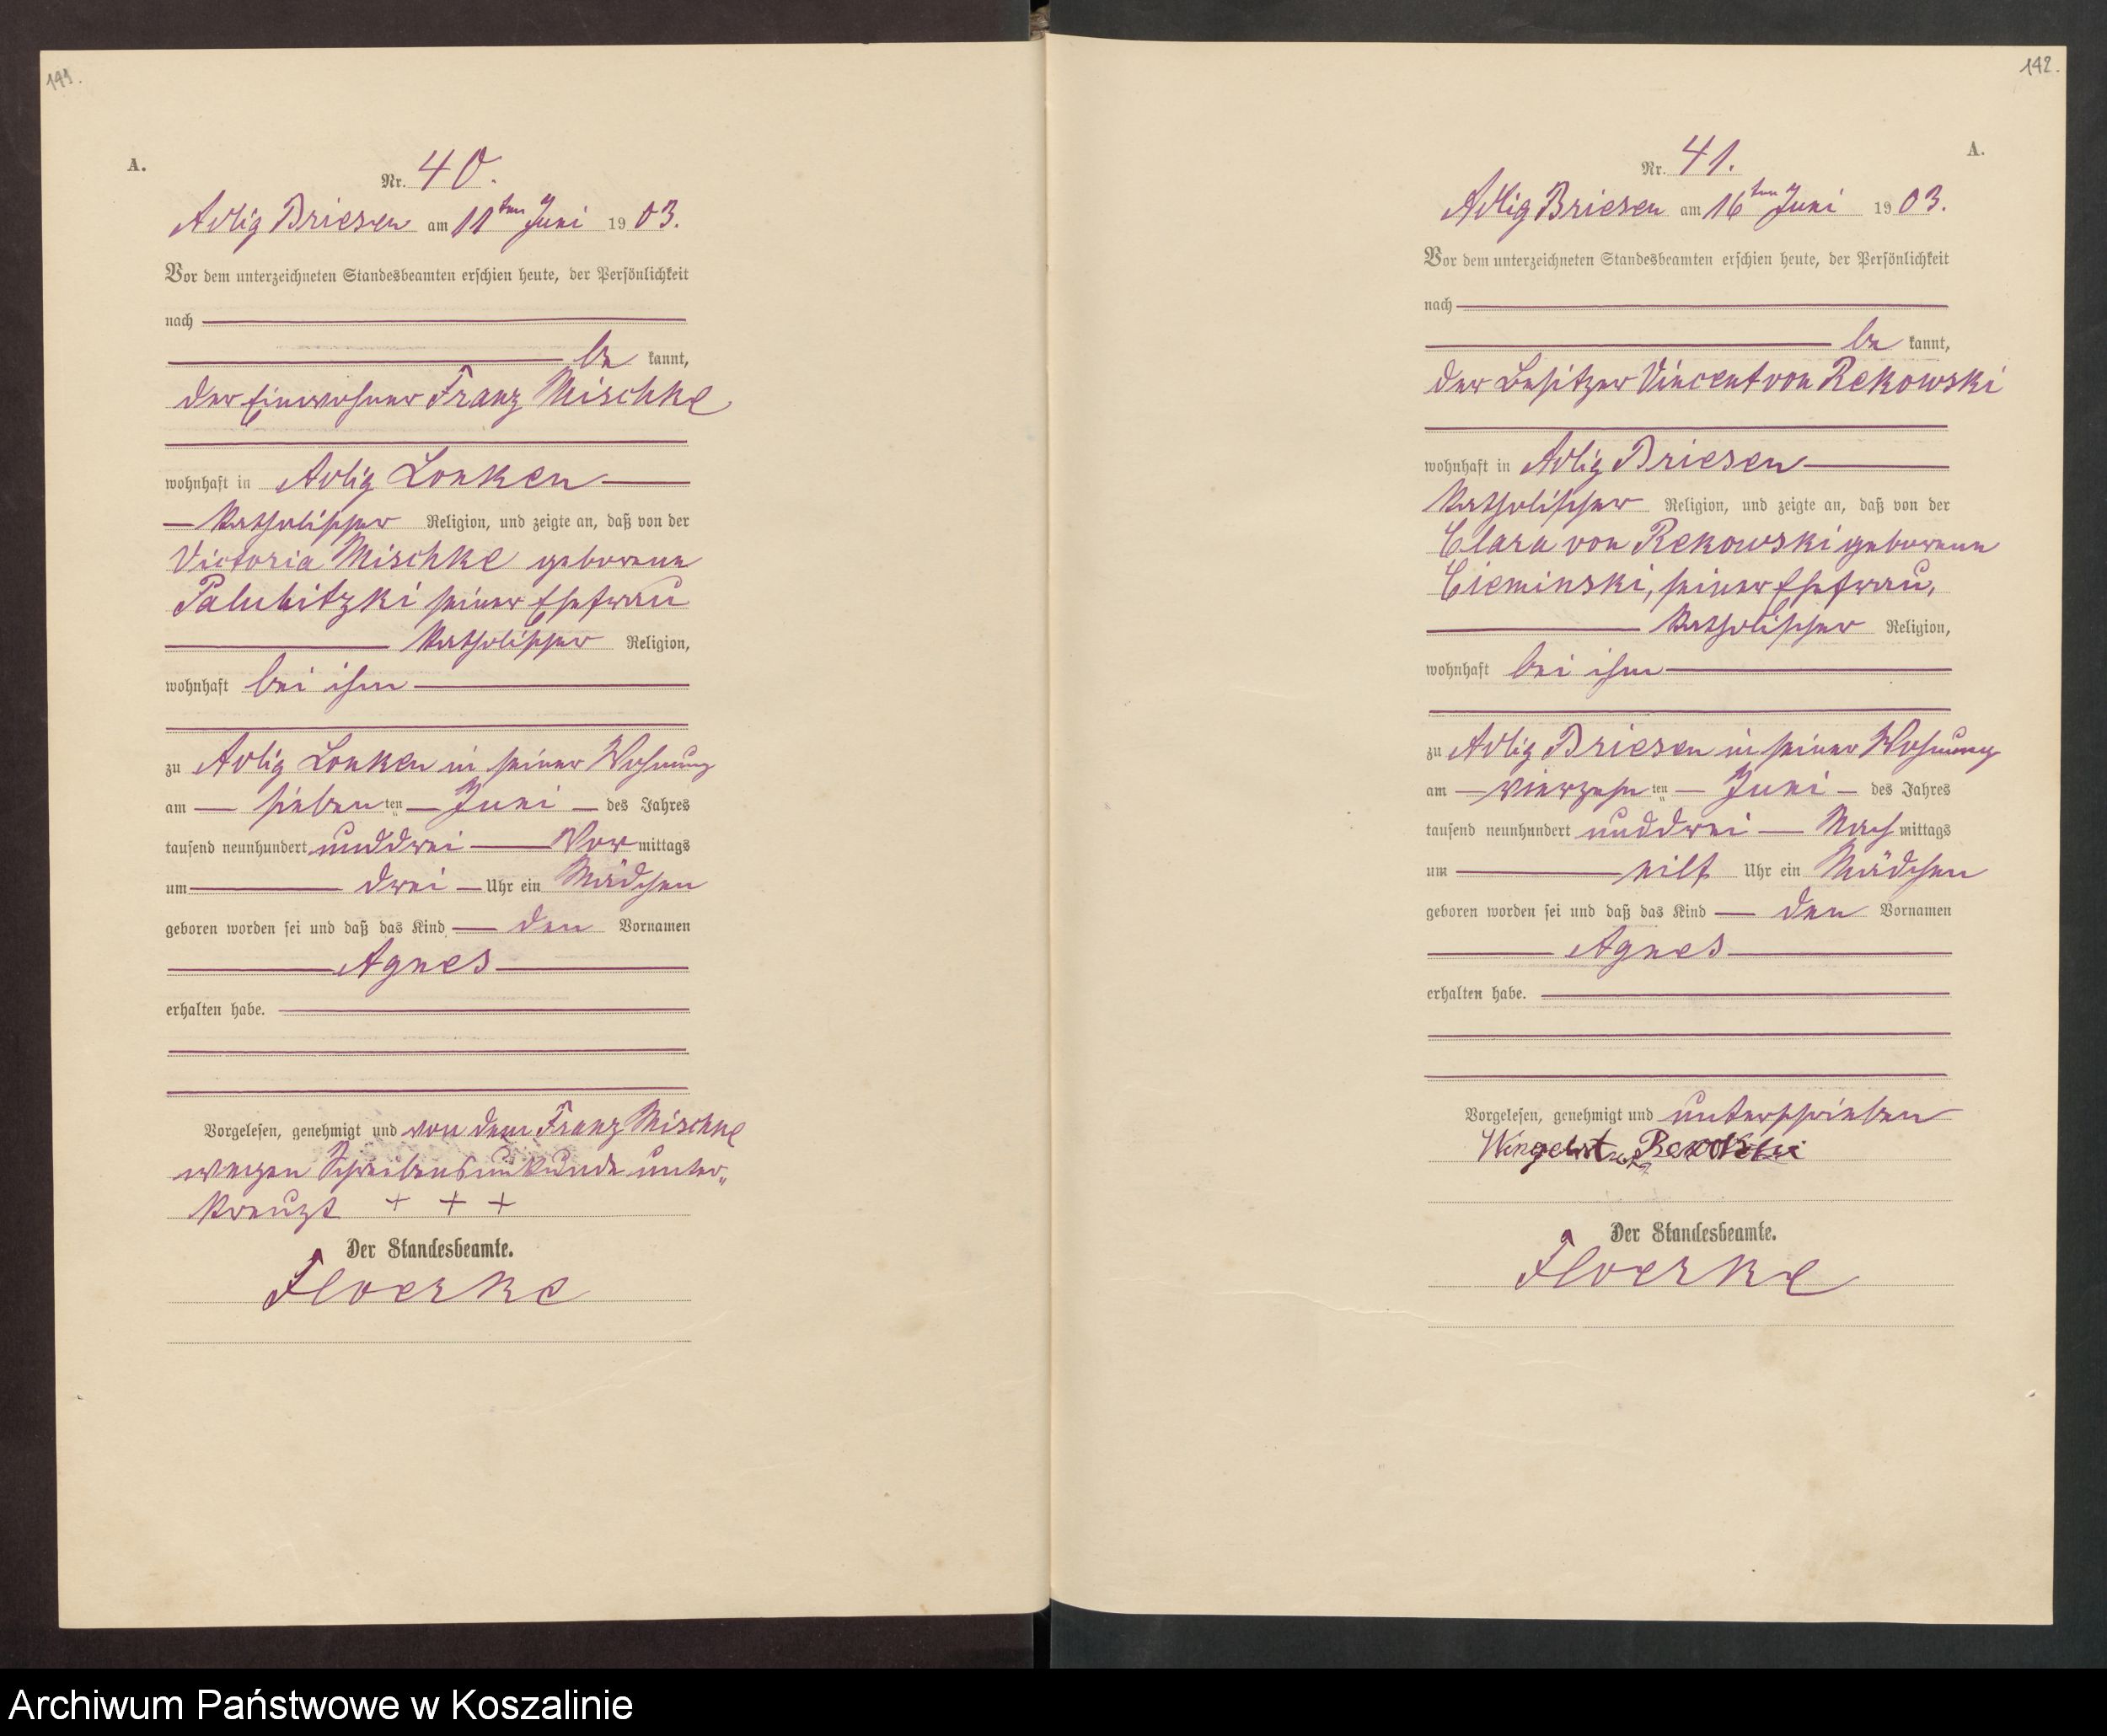 141.
A.
Nr. 40.
Adlig Briesen am 11ten Juni 1903.
Vor dem unterzeichneten Standesbeamten erschien heute, der Persönlichkeit
nach
be kannt,
der Einwohner Franz Mischke
wohnhaft in Adlig Lonken
katholischer Religion, und zeigte an, daß von der
Victoria Mischke geborene
Palubitzki seiner Ehefrau
katholischer Religion,
wohnhaft bei ihm
zu Adlig Lonken in seiner Wohnung
am sieben ten Juni des Jahres
tausend neunhundert unddrei Vor mittags
um drei Uhr ein Mädchen
geboren worden sei und daß das Kind den Vornamen
Agnes
erhalten habe.
Vorgelesen, genehmigt und von dem Franz Mischke
wegen Schreibensunkunde unter„
kreuzt + + +
Der Standesbeamte.
Floerke
142.
A.
Nr. 41.
Adlig Briesen am 16ten Juni 1903.
Vor dem unterzeichneten Standesbeamten erschien heute, der Persönlichkeit
nach
be kannt,
der Besitzer Vincent von Rekowski
wohnhaft in Adlig Briesen
katholischer Religion, und zeigte an, daß von der
Clara von Rekowski geborene
Cieminski, seiner Ehefrau,
katholischer Religion,
wohnhaft bei ihm
zu Adlig Briesen in seiner Wohnung
am vierzehn ten Juni des Jahres
tausend neunhundert unddrei Nach mittags
um eilf Uhr ein Mädchen
geboren worden sei und daß das Kind den Vornamen
Agnes
erhalten habe.
Vorgelesen, genehmigt und unterschrieben
Der Standesbeamte.
Floerke
Archiwum Państwowe w Koszalinie